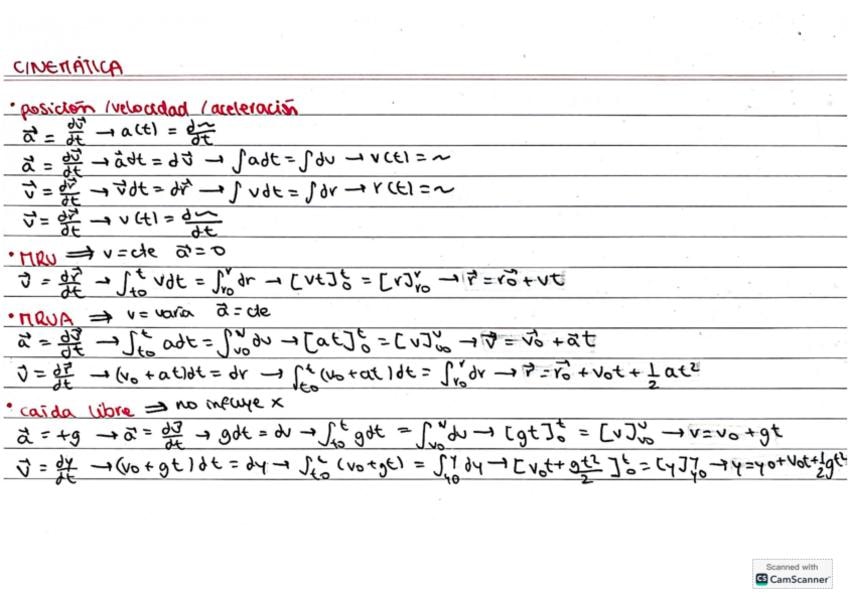 CINEMÁTICA
• posición / velocidad / aceleración
a⃗ = dv⃗/dt → a(t) = d~/dt
a⃗ = dv⃗/dt → a⃗dt = dv⃗ → ∫adt = ∫dv → v(t) = ~
v⃗ = dr⃗/dt → v⃗dt = dr⃗ → ∫vdt = ∫dr → r(t) = ~
v⃗ = dr⃗/dt → v(t) = d~/dt
• MRU ⇒ v = cte a⃗ = 0
v⃗ = dr⃗/dt → ∫_{t0}^{t} vdt = ∫_{r0}^{r} dr → [vt]_0^t = [r]_{r0}^r → r⃗ = r⃗0 + vt
• MRUA ⇒ v = varía a⃗ = cte
a⃗ = dv⃗/dt → ∫_{t0}^{t} adt = ∫_{v0}^{v} dv → [at]_0^t = [v]_{v0}^v → v⃗ = v⃗0 + a⃗t
v⃗ = dr⃗/dt → (v0 + at)dt = dr → ∫_{t0}^{t} (v0 + at)dt = ∫_{r0}^{r} dr → r⃗ = r⃗0 + v0t + 1/2 at²
• caída libre ⇒ no influye x
a⃗ = +g → a⃗ = dv⃗/dt → gdt = dv → ∫_{t0}^{t} gdt = ∫_{v0}^{v} dv → [gt]_0^t = [v]_{v0}^v → v = v0 + gt
v⃗ = dy/dt → (v0 + gt)dt = dy → ∫_{t0}^{t} (v0 + gt) = ∫_{y0}^{y} dy → [v0t + gt²/2]_0^t = [y]_{y0}^y → y = y0 + v0t + 1/2 gt²
Scanned with
CS CamScanner